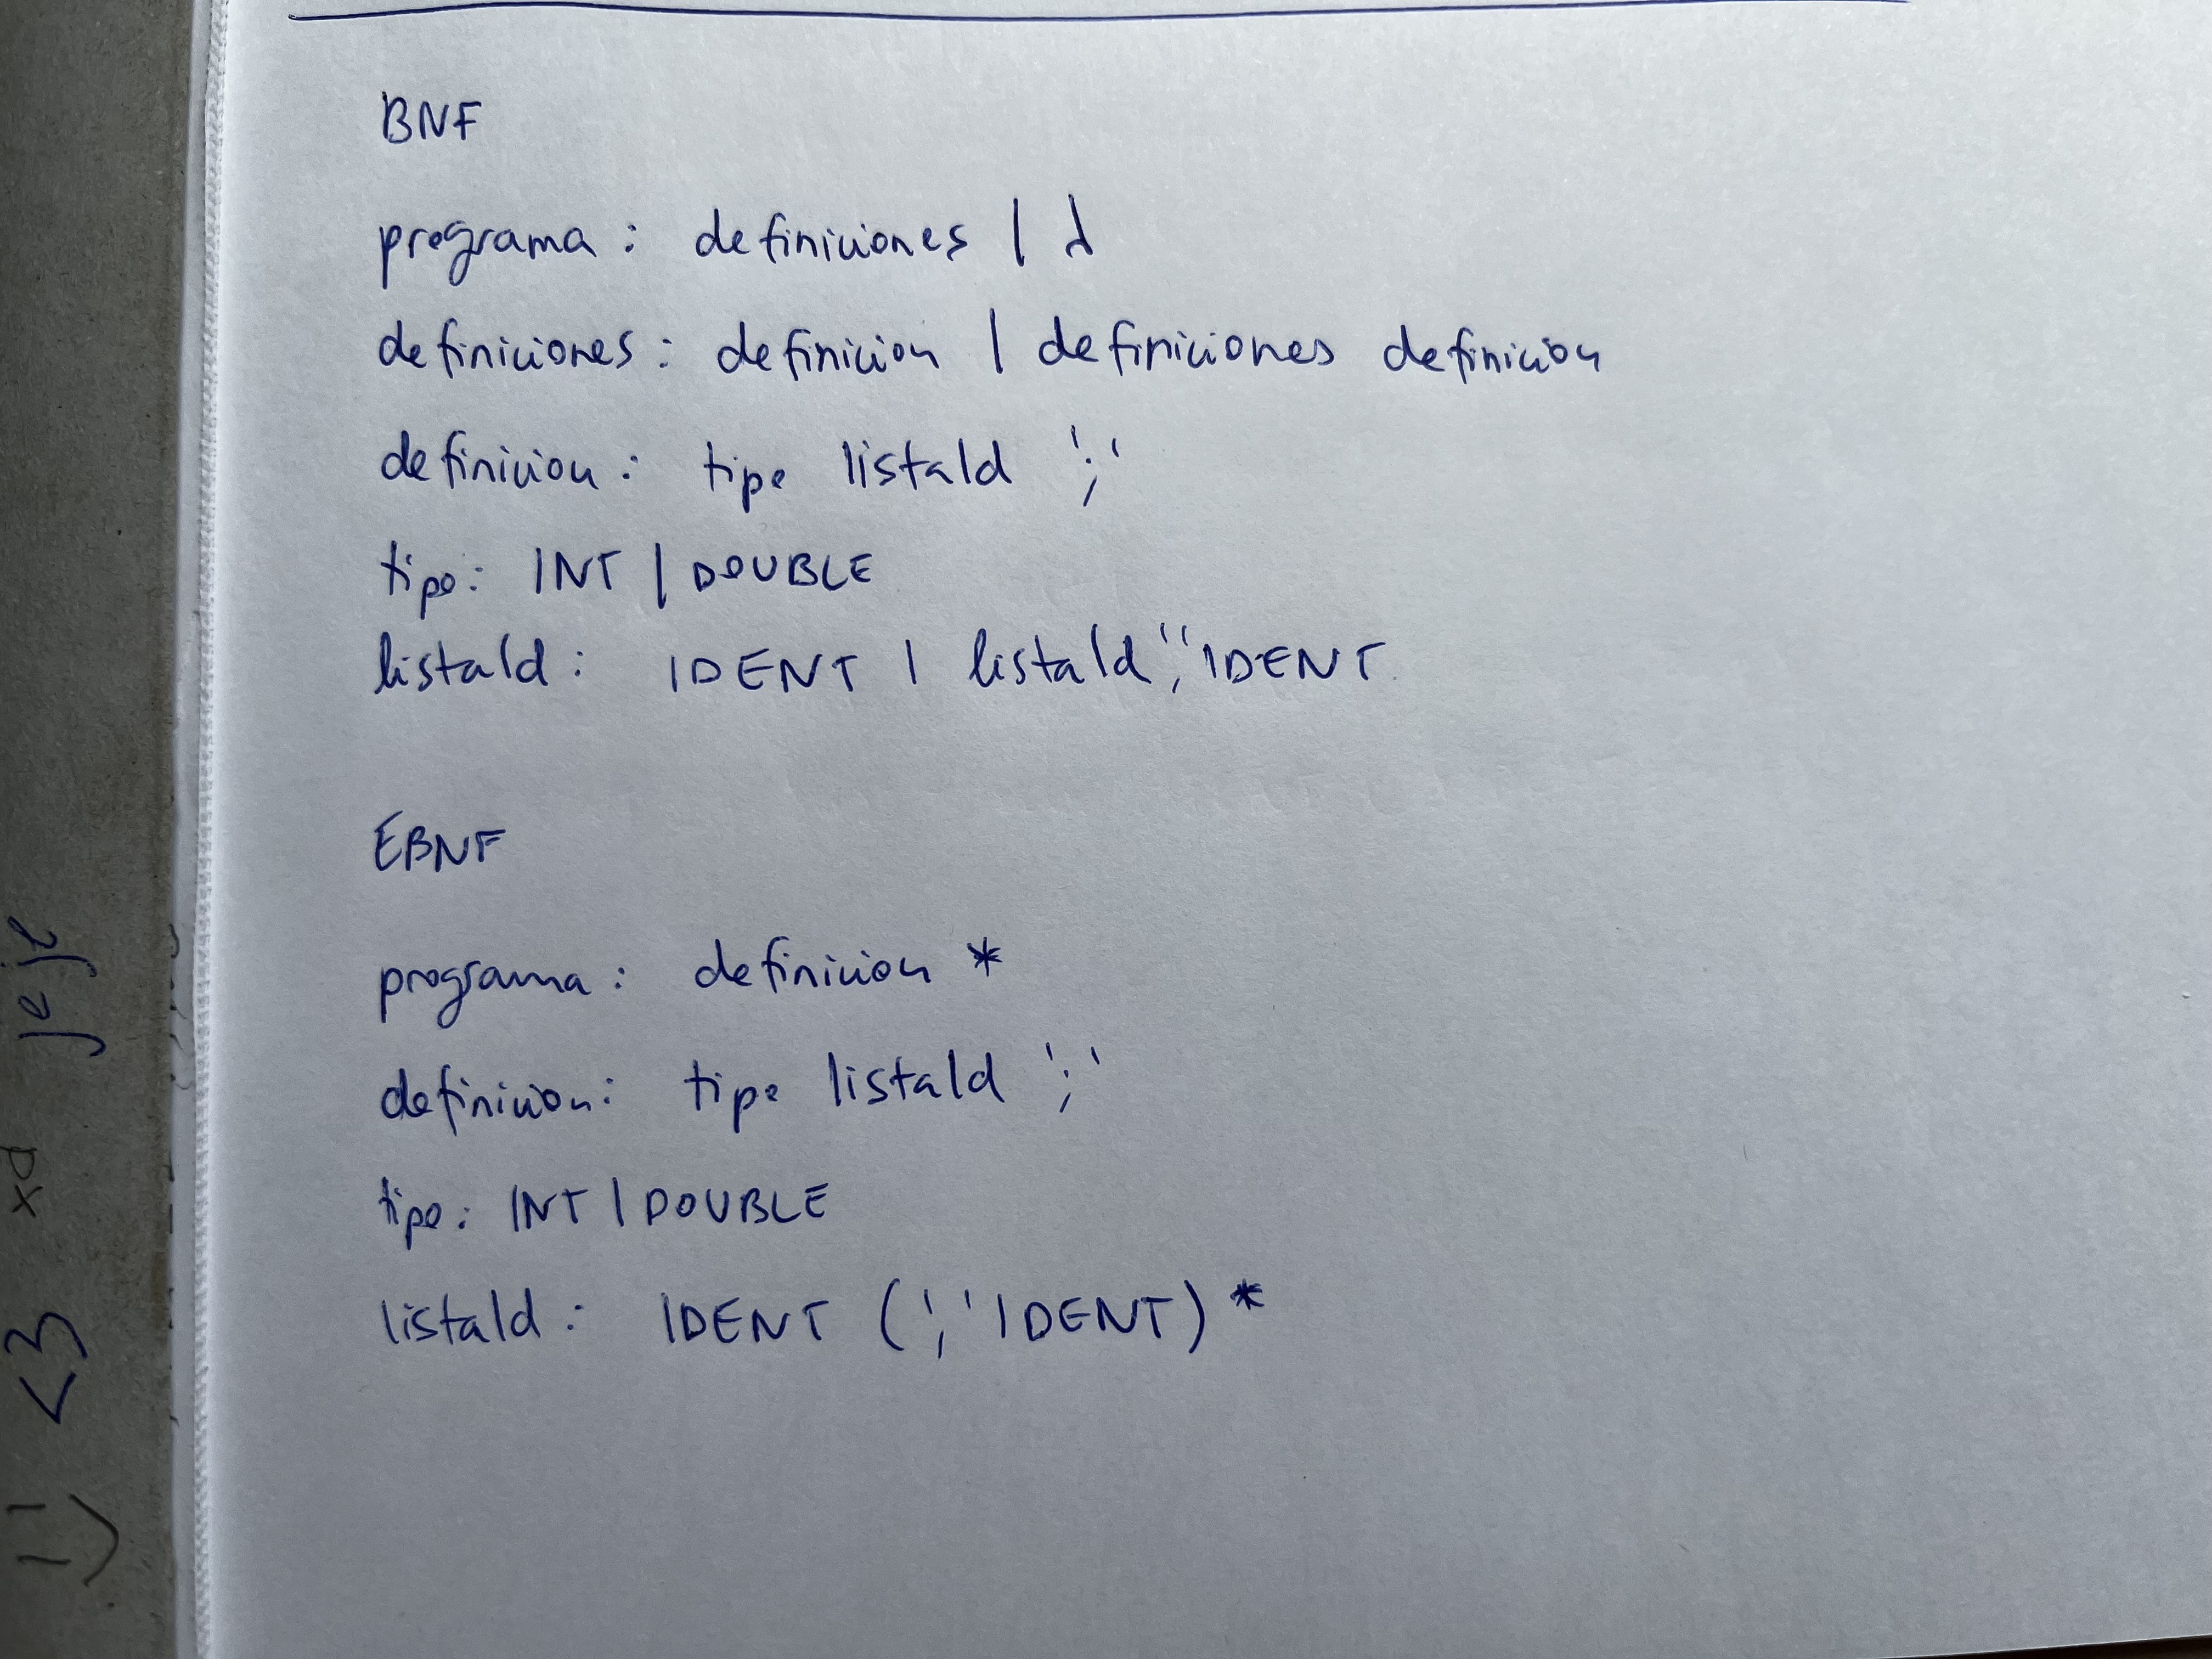 BNF
programa : definiciones | λ
definiciones : definicion | definiciones definicion
definicion : tipo listaId ';'
tipo : INT | DOUBLE
listaId : IDENT | listaId ',' IDENT
EBNF
programa : definicion *
definicion : tipo listaId ';'
tipo : INT | DOUBLE
listaId : IDENT (',' IDENT) *
:) <3 xd jeje